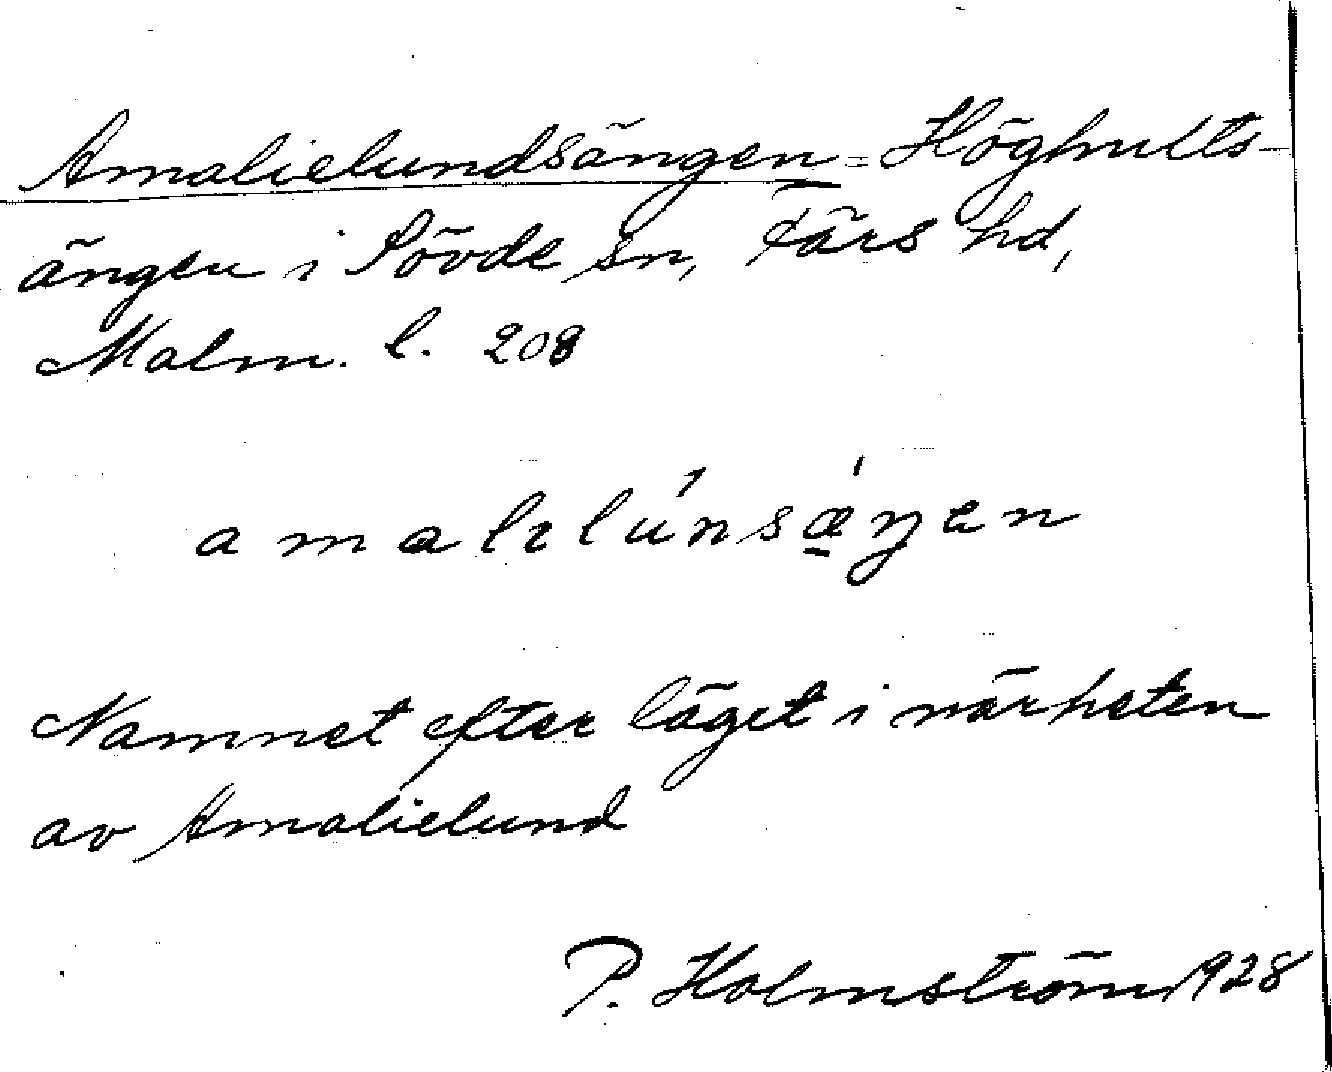 Amalielundsängen = Höghults-
ängen i Sövde sn, Färs hd,
Malm. l. 208
amalelúnsǽ̱ŋen
Namnet efter läget i närheten
av Amalielund
P. Holmström 1928